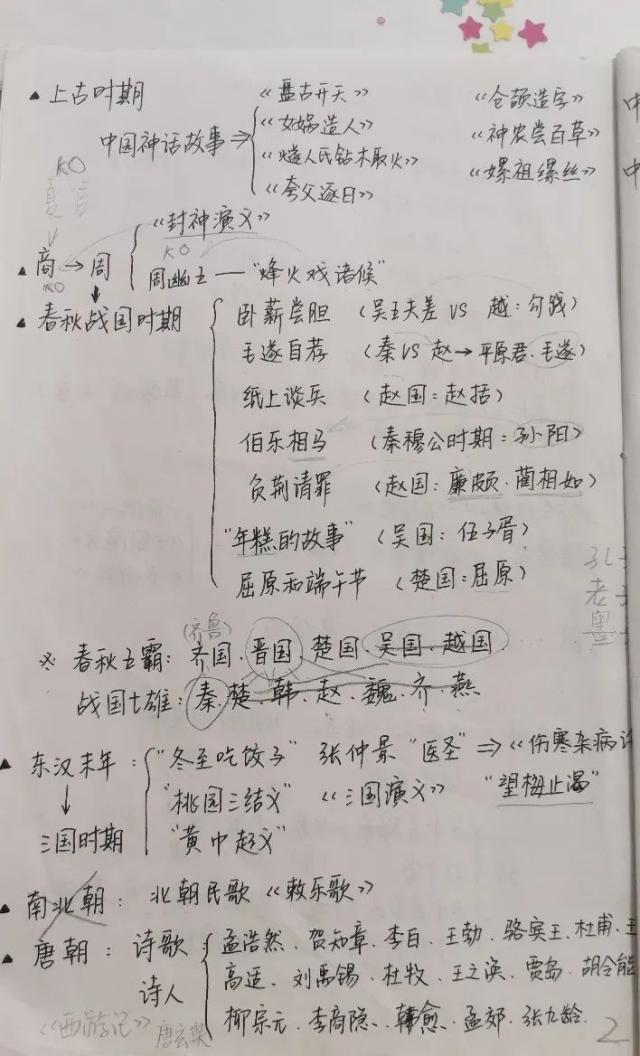 ▲ 上古时期 《盘古开天》 《仓颉造字》
中国神话故事⇒ 《女娲造人》 《神农尝百草》
《燧人氏钻木取火》 《嫘祖缫丝》
KO 《夸父逐日》
夏
《封神演义》
KO
▲ 商→周 周幽王——"烽火戏诸候"
KO
▲ 春秋战国时期 卧薪尝胆 (吴王夫差 VS 越:勾践)
毛遂自荐 (秦VS赵→平原君.毛遂)
纸上谈兵 (赵国:赵括)
伯乐相马 (秦穆公时期:孙阳)
负荆请罪 (赵国:廉颇.蔺相如)
"年糕的故事" (吴国:伍子胥)
屈原和端午节 (楚国:屈原)
(齐鲁)
※ 春秋五霸:齐国.晋国.楚国.吴国.越国
战国七雄:秦.楚.韩.赵.魏.齐.燕
▲ 东汉末年:"冬至吃饺子" 张仲景 "医圣"⇒《伤寒杂病
↓ "桃园三结义" 《三国演义》 "望梅止渴"
三国时期 "黄巾起义"
▲ 南北朝:北朝民歌《敕乐歌》
▲ 唐朝:诗歌 孟浩然.贺知章.李白.王勃.骆宾王.杜甫.王
诗人 高适.刘禹锡.杜牧.王之涣.贾岛.胡令能
柳宗元.李商隐.韩愈.孟郊.张九龄.
《西游记》唐玄奘
2